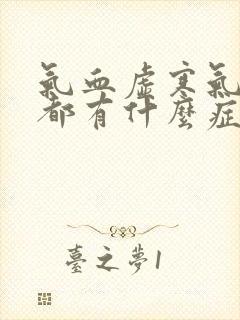 氣血虛寒氣
都有什麼症
臺之夢1